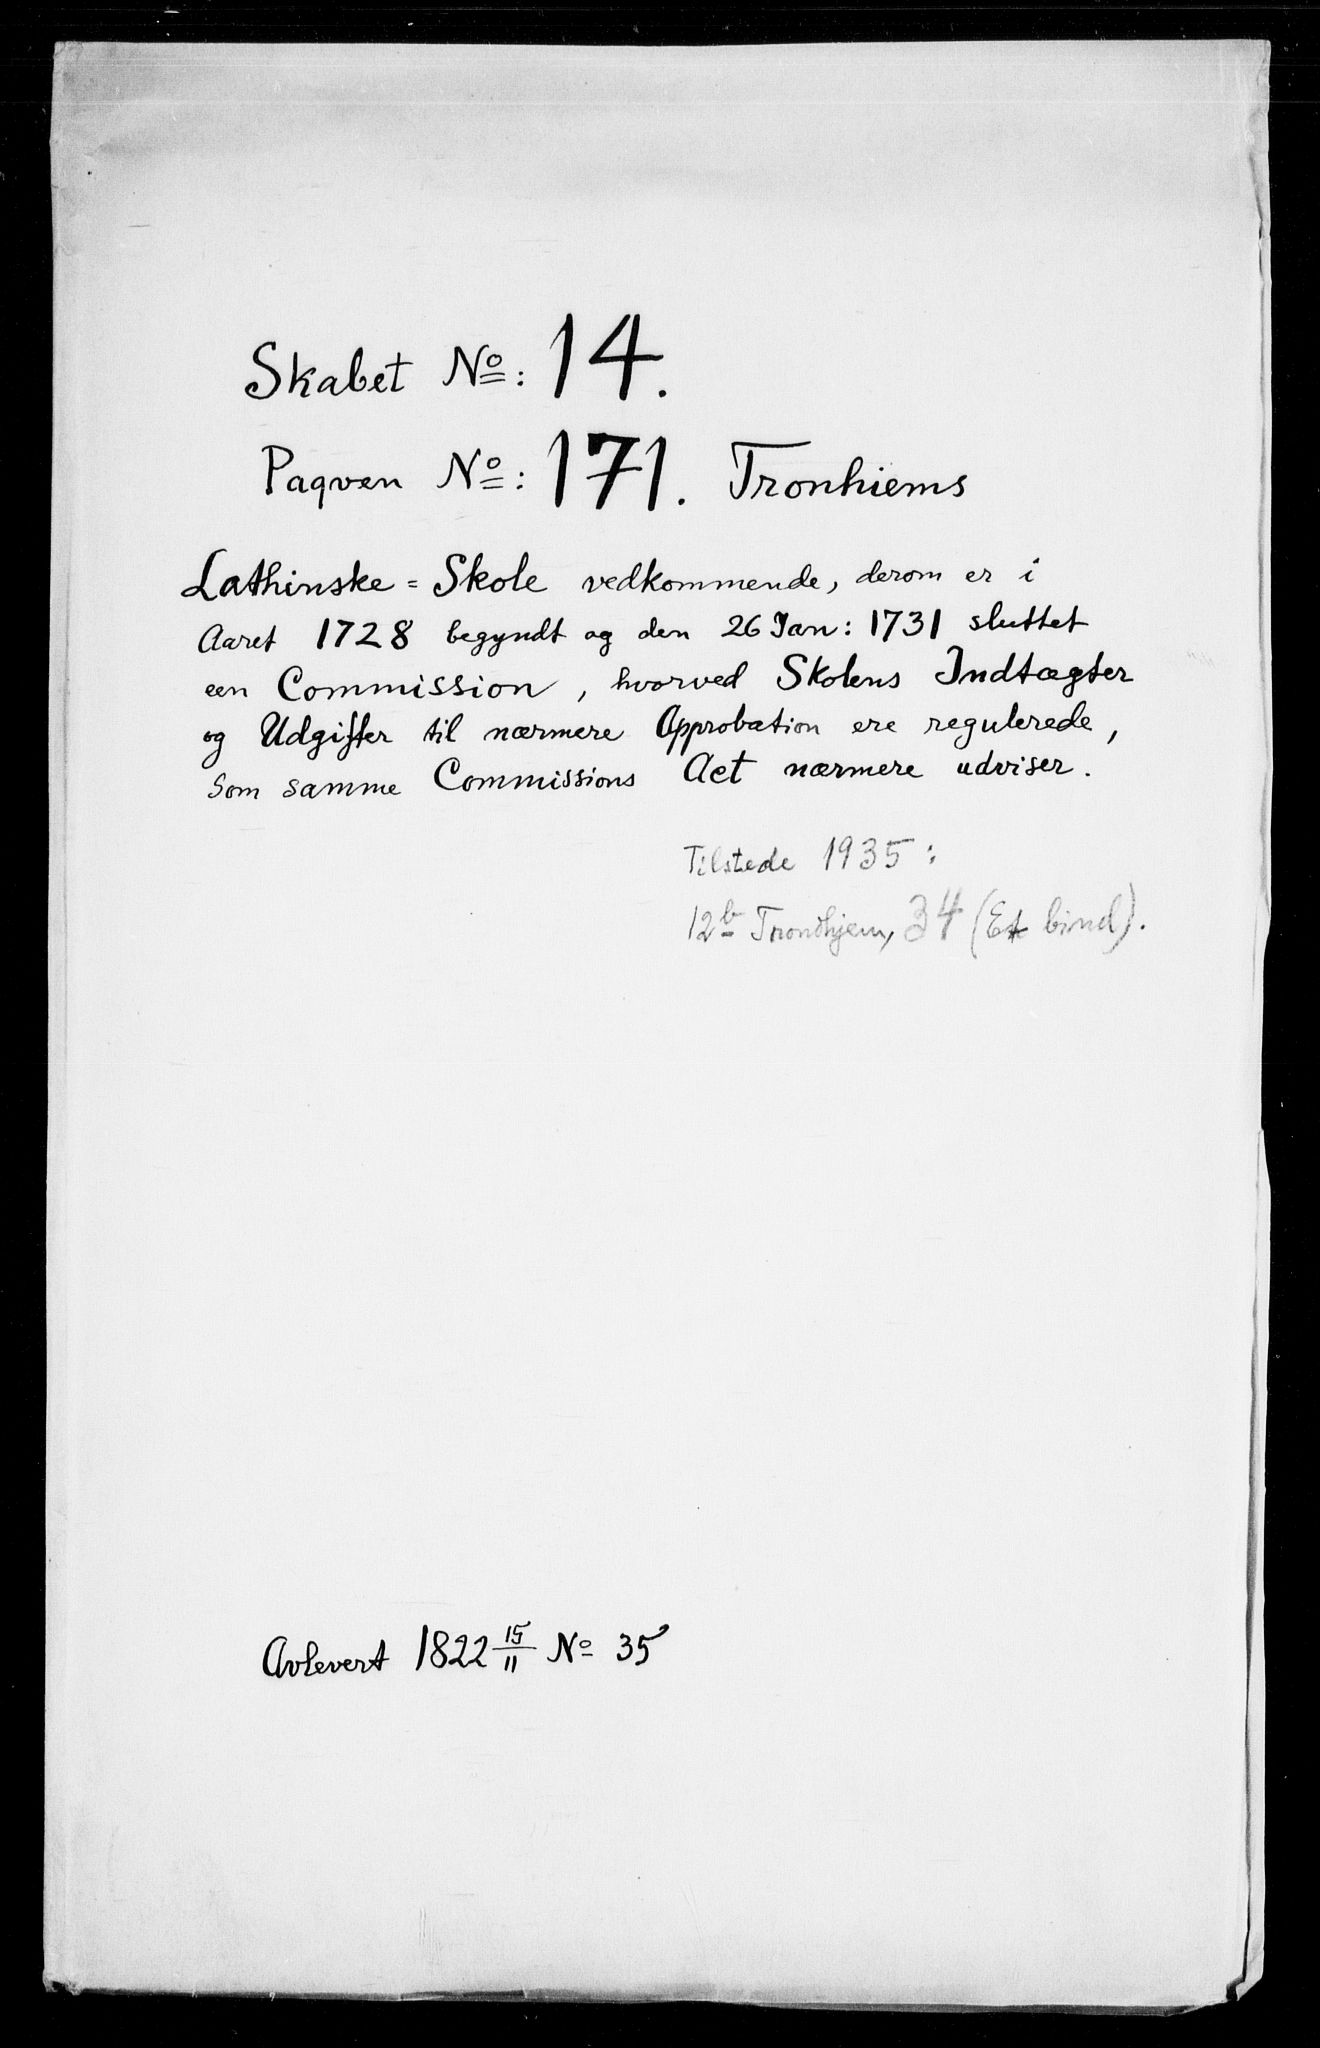 Skabet No: 14.
Paqven No: 171. Tronhiems
Lathinske = Skole vedkommende, derom er i
Aaret 1728 begyndt og den 26 Jan: 1731 sluttet
een Commission, hvorved Skolens Indtægter
og Udgifter til nærmere Approbation ere regulerede,
som samme Commissions Act nærmere udviser.
Tilstede 1935:
12b Trondhjem, 34 (Et bind).
Avlevert 1822 15/11 No 35